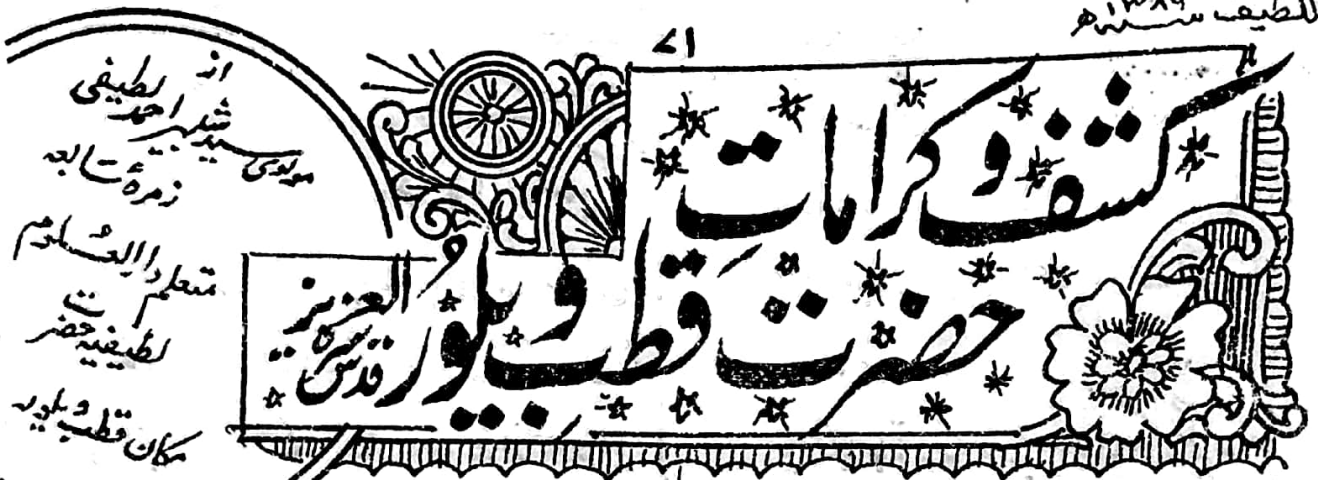 اللطیف سنہ ۱۳۸۹ھ
۷۱
کشف و کرامات
حضرت قطب ویلور قدس سرہ العزیز
از
مولوی سید شبیر احمد لطیفی
زمرۂ سابعہ
متعلم دارالعلوم
لطیفیہ حضرت
مکان قطب ویلور